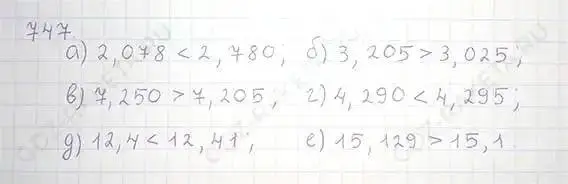 747.
а) 2,078 < 2,780; б) 3,205 > 3,025;
в) 7,250 > 7,205, г) 4,290 < 4,295;
д) 12,4 < 12,41; е) 15,129 > 15,1.